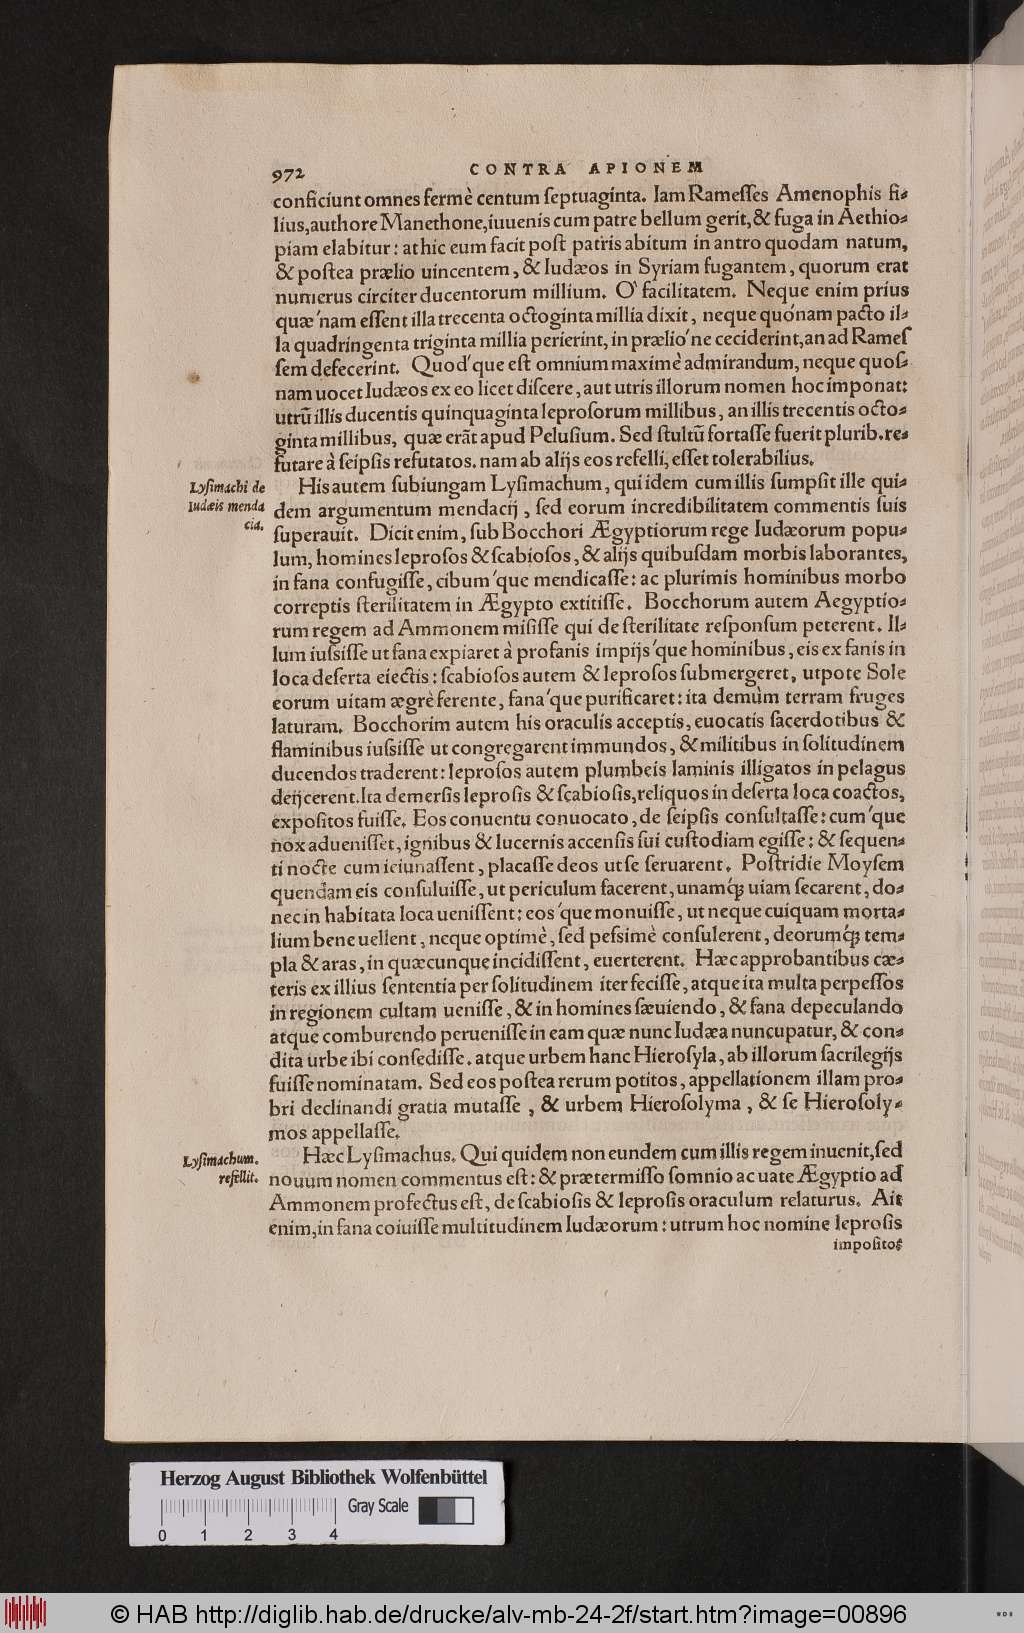 972 CONTRA APIONEM
conficiunt omnes fermè centum ſeptuaginta. Iam Rameſſes Amenophis fi-
lius, authore Manethone, iuuenis cum patre bellum gerit, & fuga in Aethio-
piam elabitur: at hic eum facit poſt patris abitum in antro quodam natum,
& poſtea prælio uincentem, & Iudæos in Syriam fugantem, quorum erat
numerus circiter ducentorum millium. O' facilitatem. Neque enim prius
quæ'nam eſſent illa trecenta octoginta millia dixit, neque quo'nam pacto il-
la quadringenta triginta millia perierint, in prælio'ne ceciderint, an ad Rameſ
ſem defecerint. Quod'que eſt omnium maximè admirandum, neque quoſ-
nam uocet Iudæos ex eo licet diſcere, aut utris illorum nomen hoc imponat:
utrũ illis ducentis quinquaginta leproſorum millibus, an illis trecentis octo-
ginta millibus, quæ erãt apud Peluſium. Sed ſtultũ fortaſſe fuerit plurib. re-
futare à ſeipſis refutatos. nam ab alijs eos refelli, eſſet tolerabilius.
Lyſimachi de
Iudæis menda
cia.
His autem ſubiungam Lyſimachum, qui idem cum illis ſumpſit ille qui-
dem argumentum mendacij, ſed eorum incredibilitatem commentis ſuis
ſuperauit. Dicit enim, ſub Bocchori Ægyptiorum rege Iudæorum popu-
lum, homines leproſos & ſcabioſos, & alijs quibuſdam morbis laborantes,
in fana confugiſſe, cibum'que mendicaſſe: ac plurimis hominibus morbo
correptis ſterilitatem in Ægypto extitiſſe. Bocchorum autem Aegyptio-
rum regem ad Ammonem miſiſſe qui de ſterilitate reſponſum peterent. Il-
lum iuſsiſſe ut fana expiaret à profanis impijs'que hominibus, eis ex fanis in
loca deſerta eiectis: ſcabioſos autem & leproſos ſubmergeret, utpote Sole
eorum uitam ægrè ferente, fana'que purificaret: ita demùm terram fruges
laturam. Bocchorim autem his oraculis acceptis, euocatis ſacerdotibus &
flaminibus iuſsiſſe ut congregarent immundos, & militibus in ſolitudinem
ducendos traderent: leproſos autem plumbeis laminis illigatos in pelagus
deijcerent. Ita demerſis leproſis & ſcabioſis, reliquos in deſerta loca coactos,
expoſitos fuiſſe. Eos conuentu conuocato, de ſeipſis conſultaſſe: cum'que
nox adueniſſet, ignibus & lucernis accenſis ſui cuſtodiam egiſſe: & ſequen-
ti nocte cum ieiunaſſent, placaſſe deos ut ſe ſeruarent. Poſtridie Moyſem
quendam eis conſuluiſſe, ut periculum facerent, unamq́; uiam ſecarent, do-
nec in habitata loca ueniſſent: eos'que monuiſſe, ut neque cuiquam morta-
lium bene uellent, neque optimè, ſed peſsimè conſulerent, deorumq́; tem-
pla & aras, in quæcunque incidiſſent, euerterent. Hæc approbantibus cæ-
teris ex illius ſententia per ſolitudinem iter feciſſe, atque ita multa perpeſſos
in regionem cultam ueniſſe, & in homines ſæuiendo, & fana depeculando
atque comburendo perueniſſe in eam quæ nunc Iudæa nuncupatur, & con-
dita urbe ibi conſediſſe. atque urbem hanc Hieroſyla, ab illorum ſacrilegijs
fuiſſe nominatam. Sed eos poſtea rerum potitos, appellationem illam pro-
bri declinandi gratia mutaſſe, & urbem Hieroſolyma, & ſe Hieroſoly-
mos appellaſſe.
Lyſimachum.
refellit.
Hæc Lyſimachus. Qui quidem non eundem cum illis regem inuenit, ſed
nouum nomen commentus eſt: & prætermiſſo ſomnio ac uate Ægyptio ad
Ammonem profectus eſt, de ſcabioſis & leproſis oraculum relaturus. Ait
enim, in fana coiuiſſe multitudinem Iudæorum: utrum hoc nomine leproſis
impoſitoſ
Herzog August Bibliothek Wolfenbüttel
Gray Scale
0 1 2 3 4
© HAB http://diglib.hab.de/drucke/alv-mb-24-2f/start.htm?image=00896